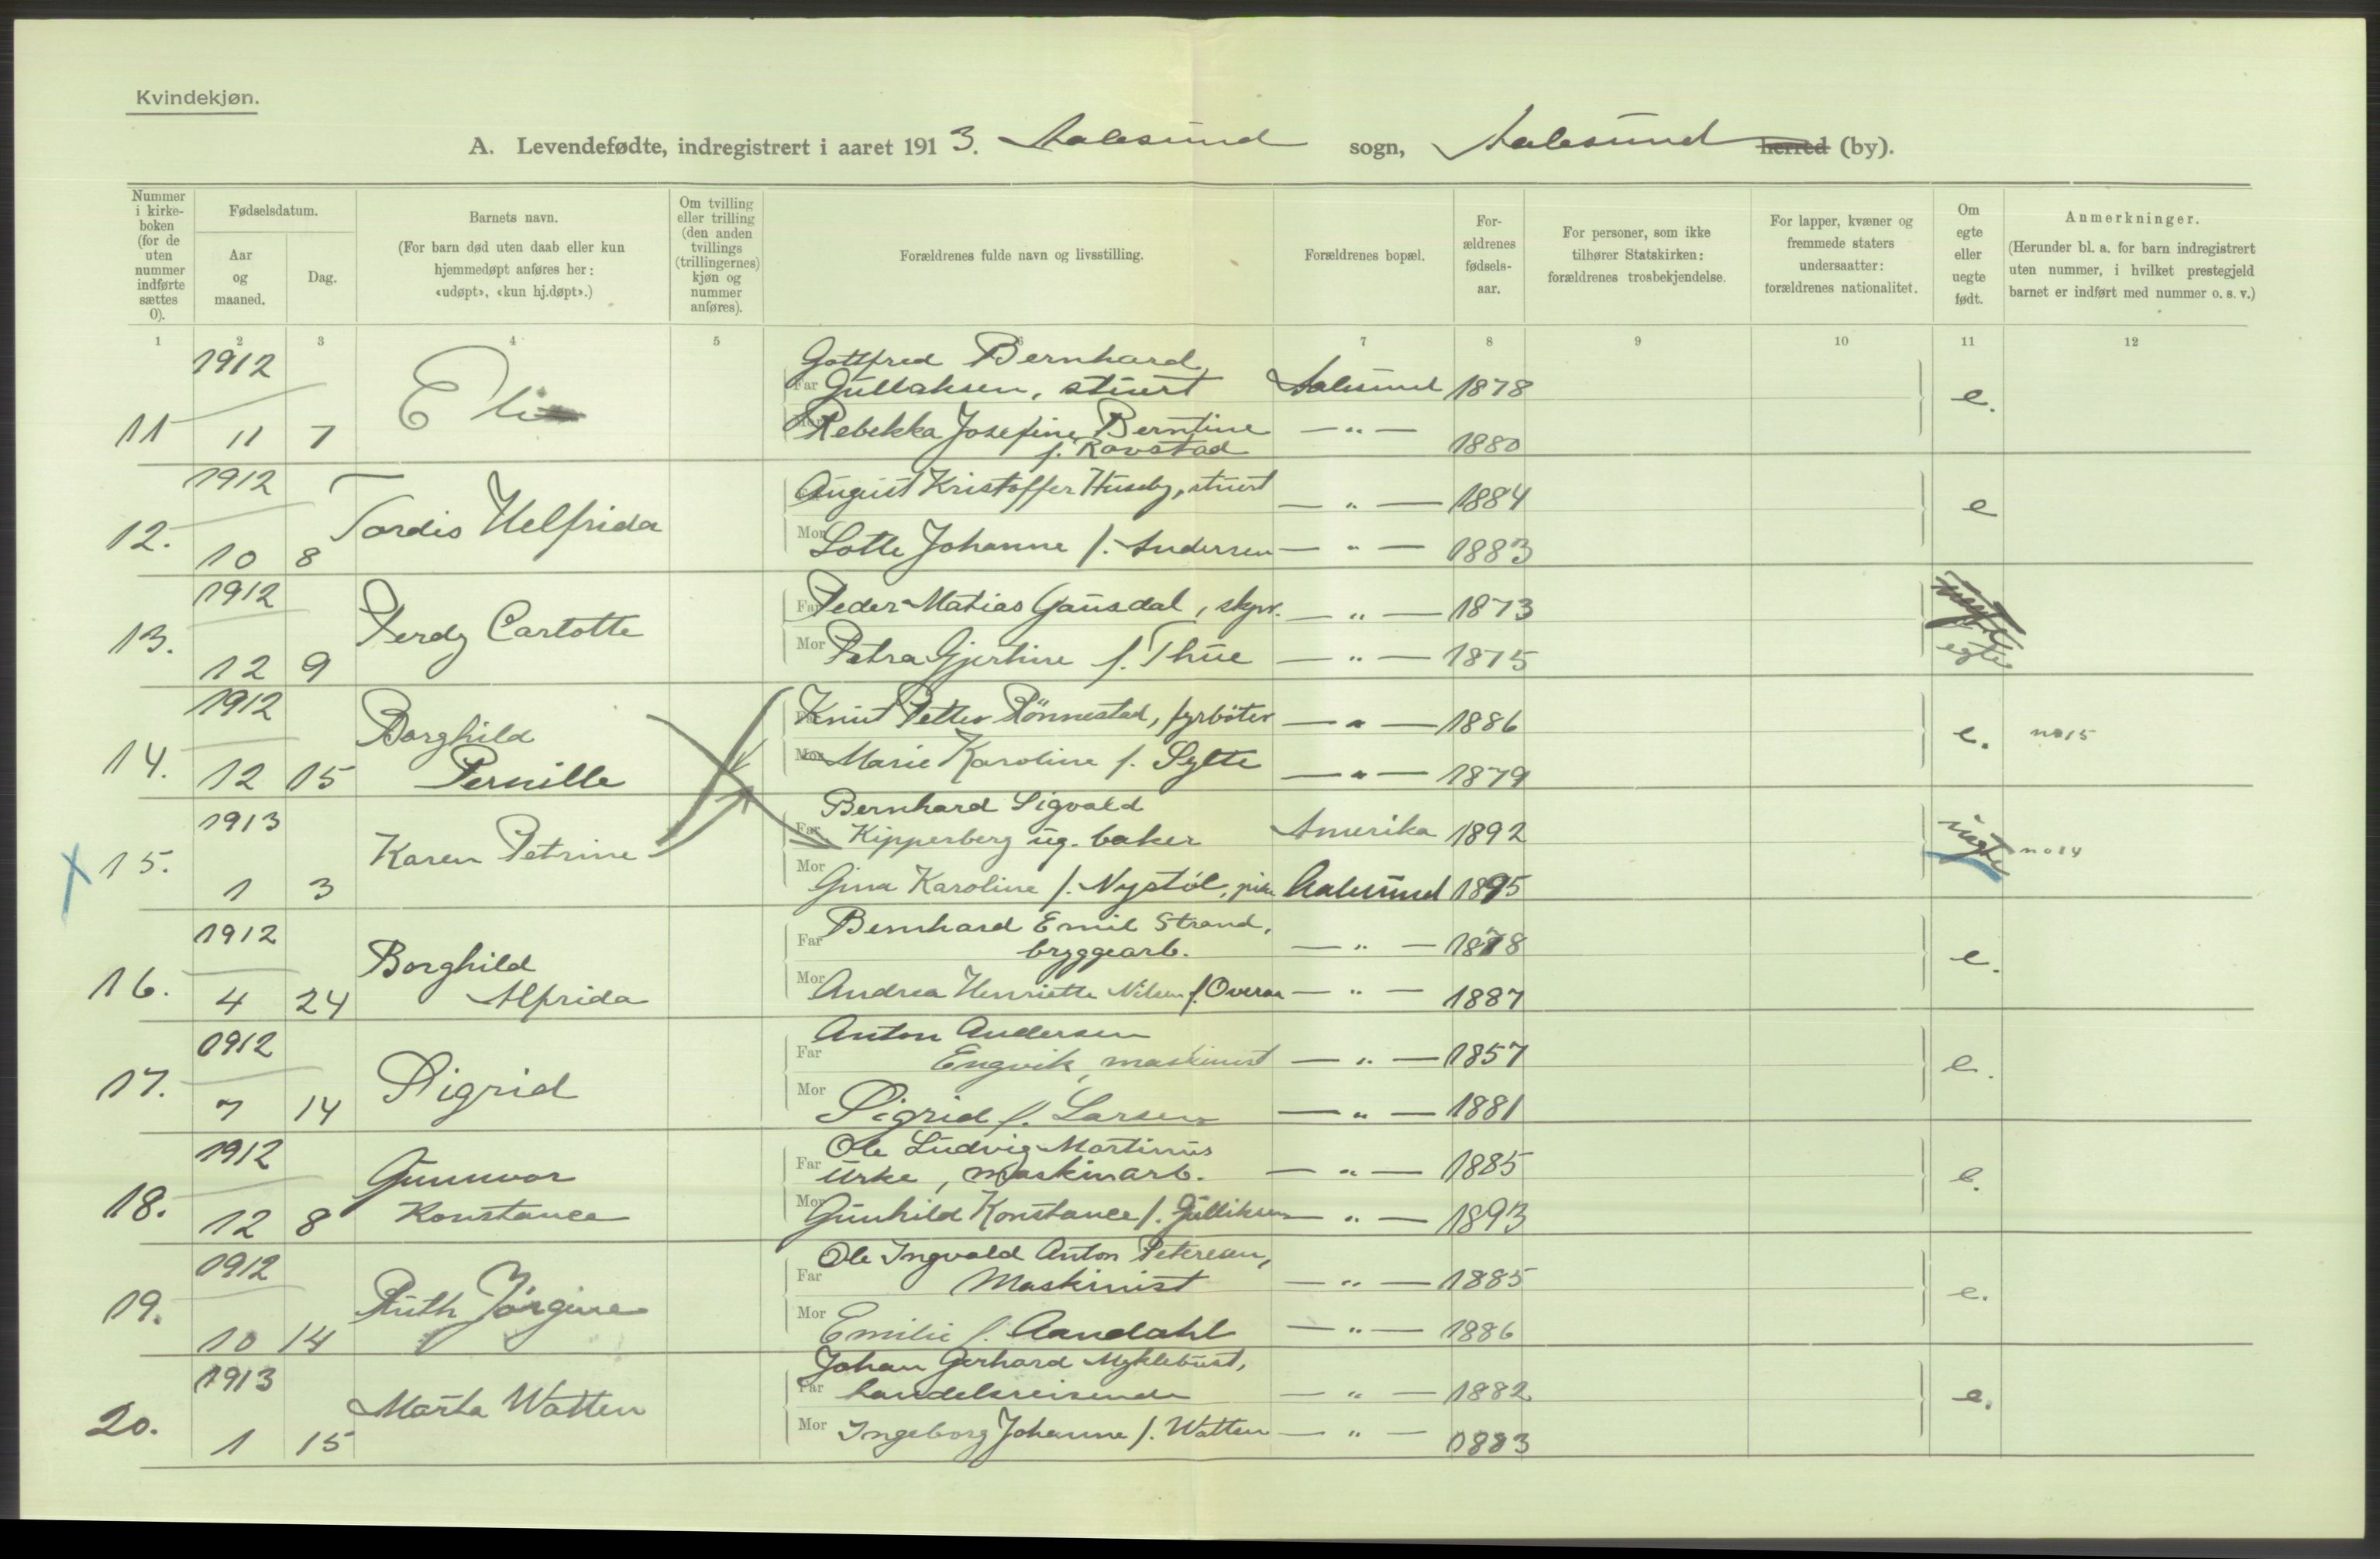 Kvindekjøn.
A. Levendefødte, indregistrert i aaret 1913. Aalesund sogn, Aalesund herred (by).
Nummer i kirke-boken (for de uten nummer indførte sættes 0).
Fødselsdatum.
Aar og maaned.
Dag.
Barnets navn.
(For barn død uten daab eller kun hjemmedøpt anføres her: «udøpt», «kun hj.døpt».)
Om tvilling eller trilling (den anden tvillings (trillingernes) kjøn og nummer anføres).
Forældrenes fulde navn og livsstilling.
Forældrenes bopæl.
For-ældrenes fødsels-aar.
For personer, som ikke tilhører Statskirken: forældrenes trosbekjendelse.
For lapper, kvæner og fremmede staters undersaatter: forældrenes nationalitet.
Om egte eller uegte født.
Anmerkninger.
(Herunder bl. a. for barn indregistrert uten nummer, i hvilket prestegjeld barnet er indført med nummer o. s. v.)
1 2 3 4 5 6 7 8 9 10 11 12
1912 Gottfred Bernhard
Far Gullaksen, stuert Aalesund 1878
11 11 7 Eli e.
Mor Rebekka Josefine Berntine — „ — 1880
f. Ravstad
1912 August Kristoffer Huseby, stuert — „ — 1884
12. 10 8 Tordis Helfrida e
Mor Lotte Johanne f. Andersen — „ — 1883
1912 Far Peder Matias Gausdal, skpr. — „ — 1873
13. 12 9 Perdy Carlotte egte
Mor Petra Gjertine f. Thue — „ — 1875
1912 Knut Petter Rönnestad, fyrböter — „ — 1886
14. 12 15 Borghild Pernille e. no 15
Mor Marie Karoline f. Sylte — „ — 1879
1913 Bernhard Sigvald
Far Kipperberg ug. baker Amerika 1892
15. 1 3 Karen Petrine uegte no 14
Mor Gina Karoline f. Nystöl, pike Aalesund 1895
1912 Far Bernhard Emil Strand,
bryggearb. — „ — 1878
16. 4 24 Borghild Alfrida e.
Mor Andrea Henriette Nilsen f. Overaa — „ — 1887
1912 Anton Andersen
Far Engvik, maskinist — „ — 1857
17. 7 14 Sigrid e.
Mor Sigrid f. Larsen — „ — 1881
1912 Ole Ludvig Martinus
Far Urke, maskinarb. — „ — 1885
18. 12 8 Gunnvor Konstance e.
Mor Gunhild Konstance f. Gulliksen — „ — 1893
1912 Ole Ingvald Anton Petersen,
Far Maskinist — „ — 1885
19. 10 14 Ruth Jörgine e.
Mor Emilie f. Aandahl — „ — 1886
1913 Johan Gerhard Myklebust,
Far handelsreisende — „ — 1882
20. 1 15 Marta Watten e.
Mor Ingeborg Johanne f. Watten — „ — 1883